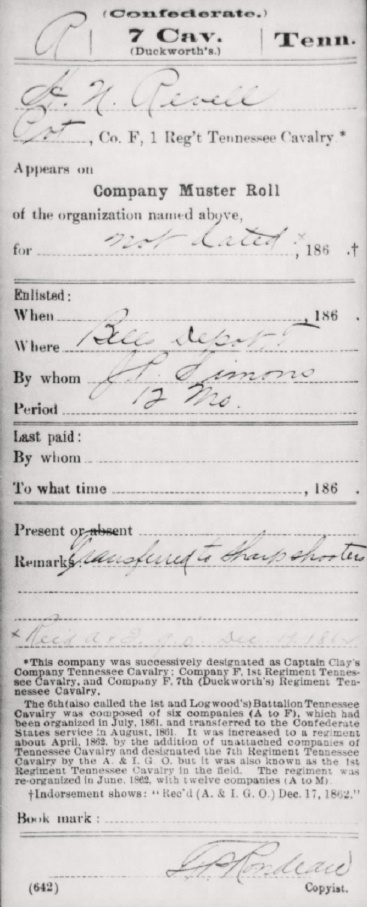 (Confederate.)
R | 7 Cav. | Tenn.
(Duckworth's.)
H. N. Revell
Pvt, Co. F, 1 Reg't Tennessee Cavalry.*
Appears on
Company Muster Roll
of the organization named above,
for not dated, 186 .†
Enlisted:
When , 186 .
Where Bells Depot T
By whom J. P. Simons
Period 12 Mo.
Last paid:
By whom
To what time , 186 .
Present or absent
Remarks Transferred to Sharpshooters
* Recd A. & I. G. O. Dec. 17, 1862
*This company was successively designated as Captain Clay's
Company Tennessee Cavalry; Company F, 1st Regiment Tennes-
see Cavalry, and Company F, 7th (Duckworth's) Regiment Ten-
nessee Cavalry.
The 6th (also called the 1st and Logwood's) Battalion Tennessee
Cavalry was composed of six companies (A to F), which had
been organized in July, 1861, and transferred to the Confederate
States service in August, 1861. It was increased to a regiment
about April, 1862, by the addition of unattached companies of
Tennessee Cavalry and designated the 7th Regiment Tennessee
Cavalry by the A. & I. G. O. but it was also known as the 1st
Regiment Tennessee Cavalry in the field. The regiment was
re-organized in June, 1862, with twelve companies (A to M).
†Indorsement shows: "Rec'd (A. & I. G. O.) Dec. 17, 1862."
Book mark:
Rondeau
(642) Copyist.